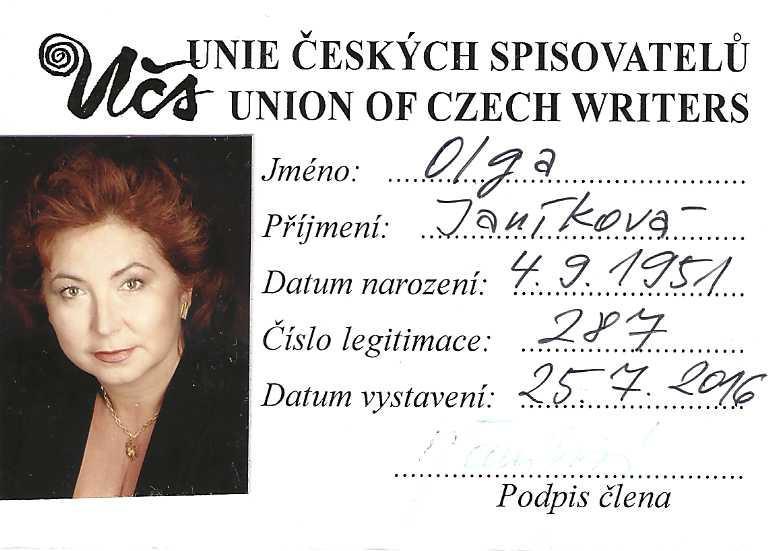 Učs UNIE ČESKÝCH SPISOVATELŮ
UNION OF CZECH WRITERS
Jméno: Olga
Příjmení: Janíková
Datum narození: 4.9.1951
Číslo legitimace: 287
Datum vystavení: 25.7.2016
Podpis člena